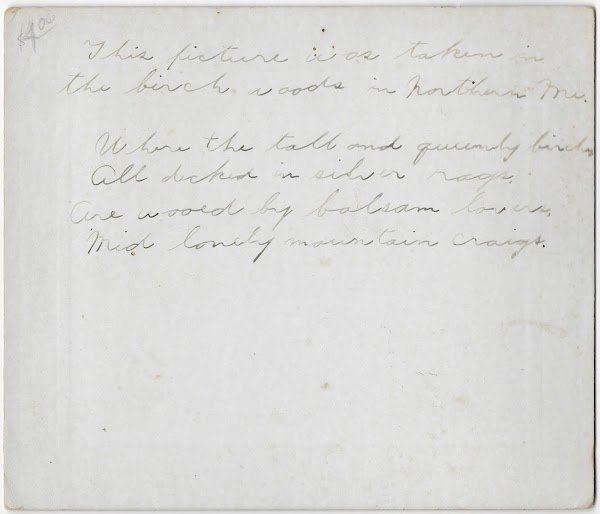 $4.00
This picture was taken in
the birch woods in Northern Me.
Where the tall and queenly birches
All decked in silver rags.
Are wooed by balsam lovers,
Mid lonely mountain craigs.